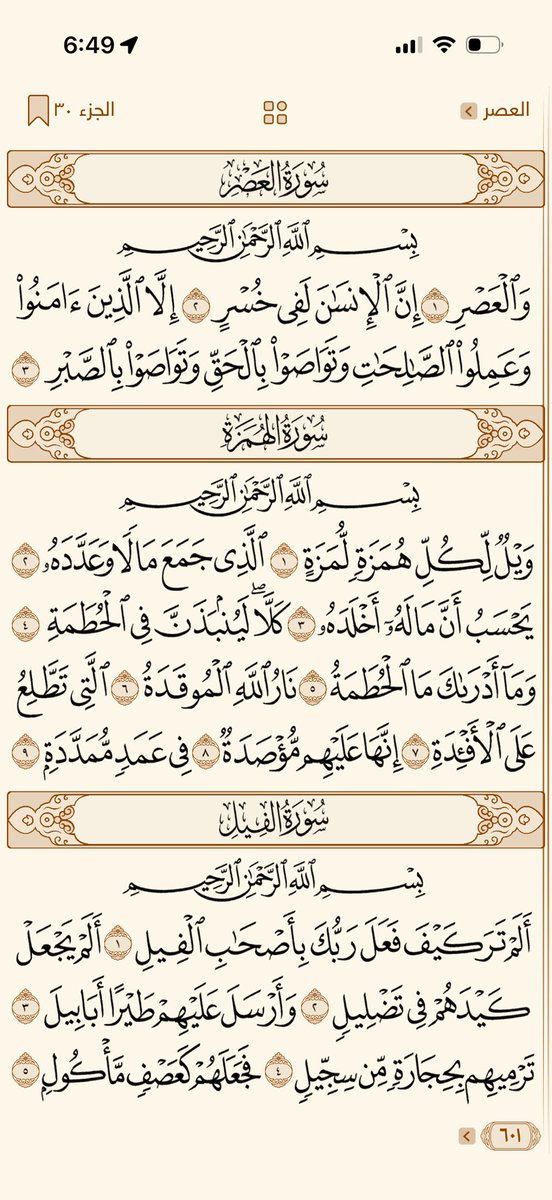 6:49
العصر
الجزء ٣٠
سُورَةُ العَصْرِ
بِسْمِ ٱللَّهِ ٱلرَّحْمَٰنِ ٱلرَّحِيمِ
وَٱلْعَصْرِ ١ إِنَّ ٱلْإِنسَٰنَ لَفِى خُسْرٍ ٢ إِلَّا ٱلَّذِينَ ءَامَنُوا۟
وَعَمِلُوا۟ ٱلصَّٰلِحَٰتِ وَتَوَاصَوْا۟ بِٱلْحَقِّ وَتَوَاصَوْا۟ بِٱلصَّبْرِ ٣
سُورَةُ الهُمَزَةِ
بِسْمِ ٱللَّهِ ٱلرَّحْمَٰنِ ٱلرَّحِيمِ
وَيْلٌ لِّكُلِّ هُمَزَةٍ لُّمَزَةٍ ١ ٱلَّذِى جَمَعَ مَالًا وَعَدَّدَهُۥ ٢
يَحْسَبُ أَنَّ مَالَهُۥٓ أَخْلَدَهُۥ ٣ كَلَّا ۖ لَيُنۢبَذَنَّ فِى ٱلْحُطَمَةِ ٤
وَمَآ أَدْرَىٰكَ مَا ٱلْحُطَمَةُ ٥ نَارُ ٱللَّهِ ٱلْمُوقَدَةُ ٦ ٱلَّتِى تَطَّلِعُ
عَلَى ٱلْأَفْـِٔدَةِ ٧ إِنَّهَا عَلَيْهِم مُّؤْصَدَةٌ ٨ فِى عَمَدٍ مُّمَدَّدَةٍۭ ٩
سُورَةُ الفِيلِ
بِسْمِ ٱللَّهِ ٱلرَّحْمَٰنِ ٱلرَّحِيمِ
أَلَمْ تَرَ كَيْفَ فَعَلَ رَبُّكَ بِأَصْحَٰبِ ٱلْفِيلِ ١ أَلَمْ يَجْعَلْ
كَيْدَهُمْ فِى تَضْلِيلٍ ٢ وَأَرْسَلَ عَلَيْهِمْ طَيْرًا أَبَابِيلَ ٣
تَرْمِيهِم بِحِجَارَةٍ مِّن سِجِّيلٍ ٤ فَجَعَلَهُمْ كَعَصْفٍ مَّأْكُولٍۭ ٥
٦٠١